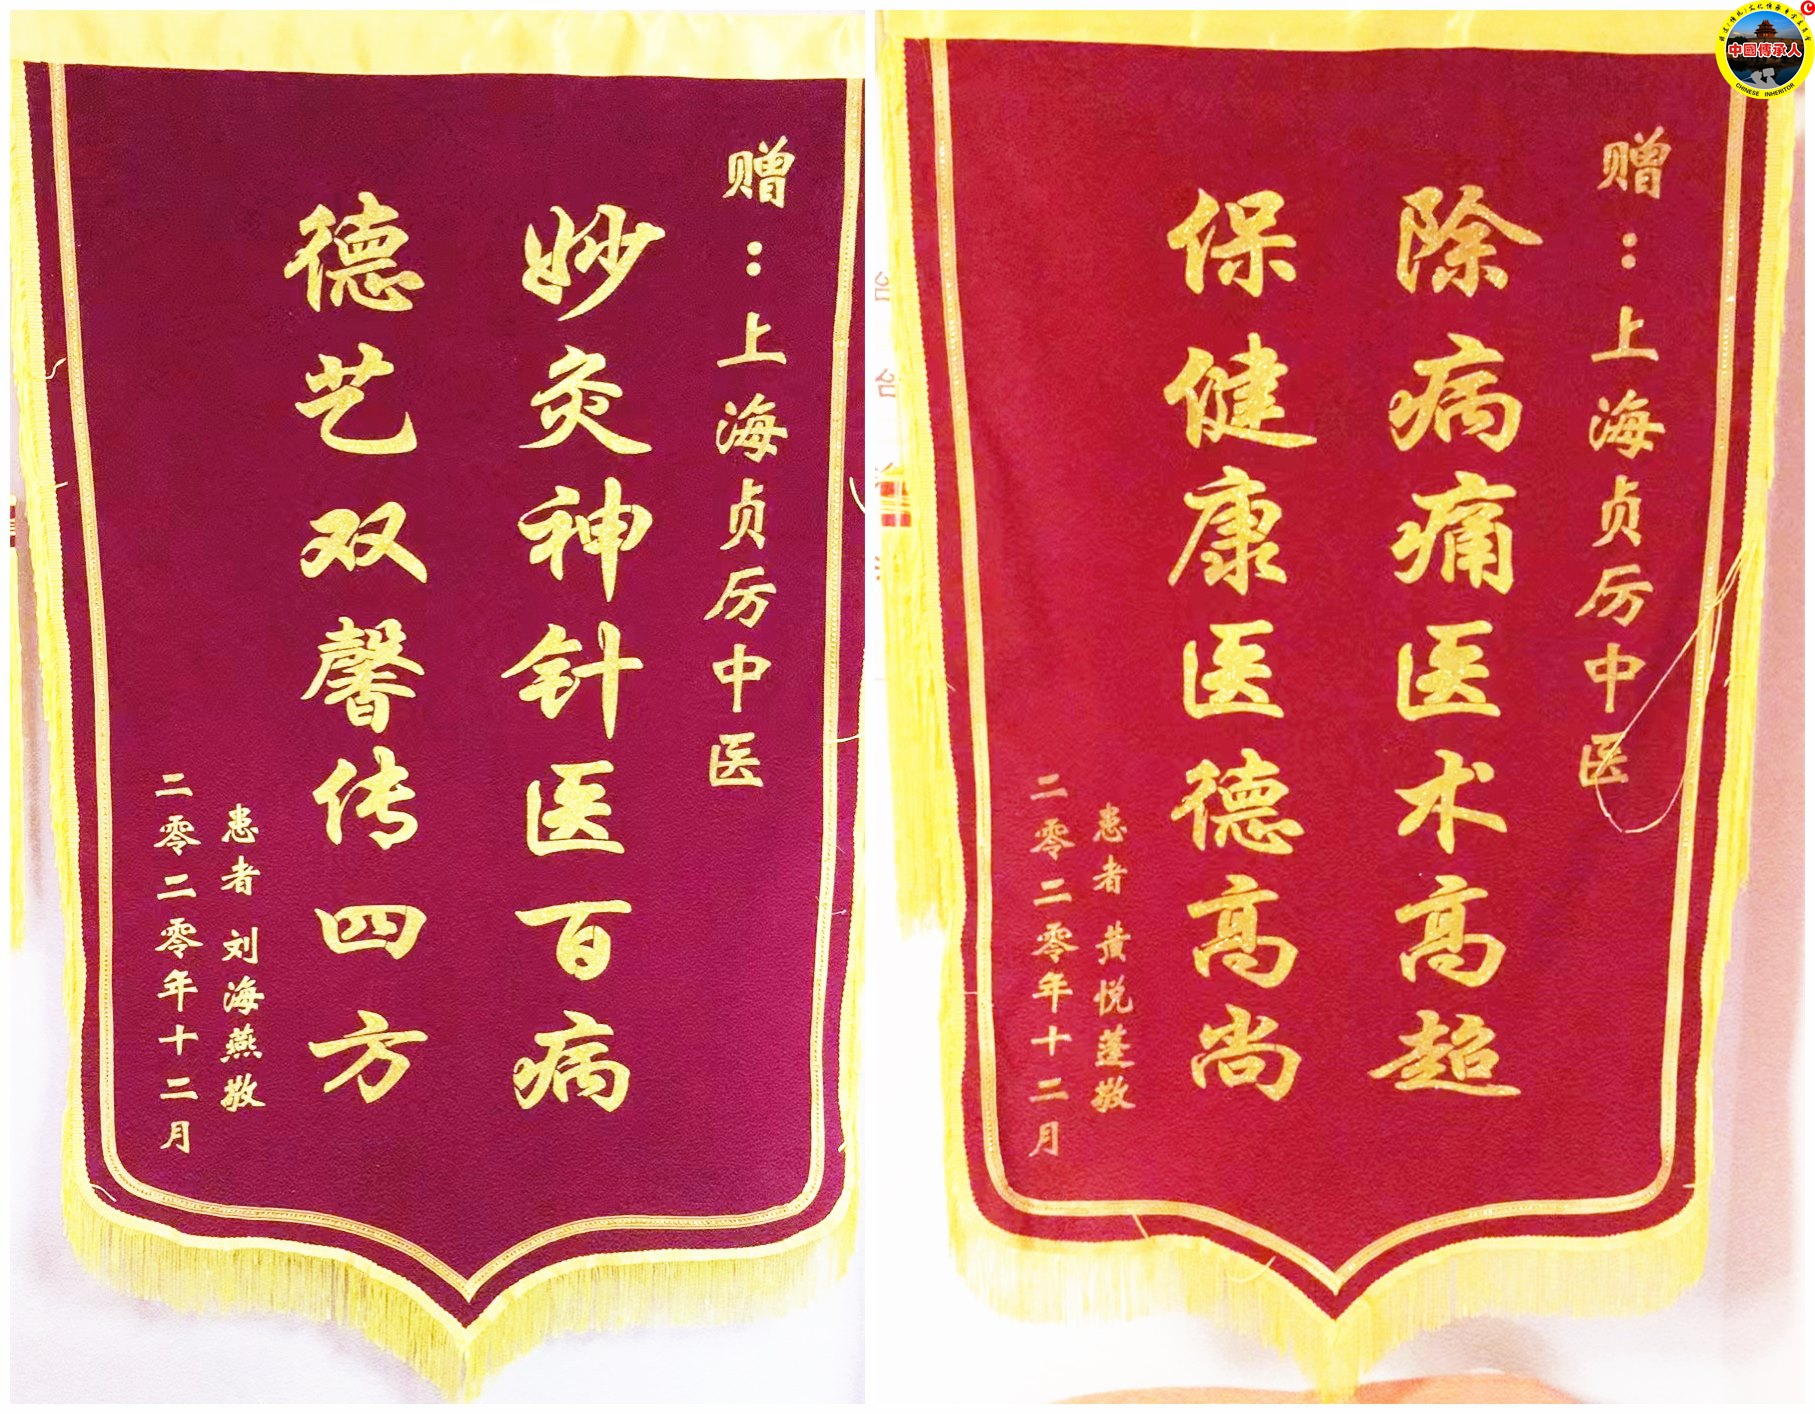 赠：上海贞厉中医
妙灸神针医百病
德艺双馨传四方
患者 刘海燕敬
二零二零年十二月
赠：上海贞厉中医
除病痛医术高超
保健康医德高尚
患者 黄悦莲敬
二零二零年十二月
中國傳承人
CHINESE INHERITOR